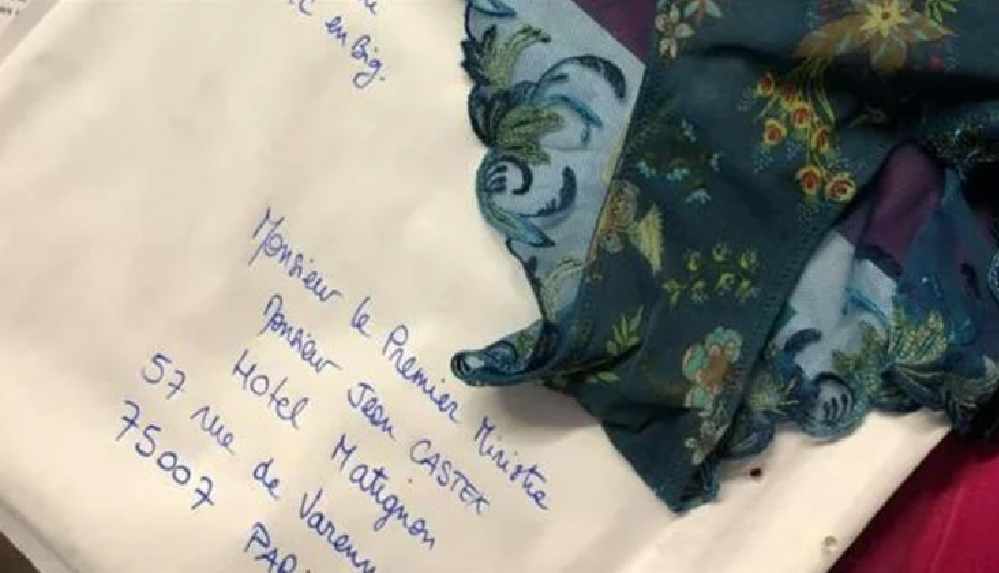 en Big.
Monsieur le Premier Ministre
Monsieur Jean CASTEX
Hotel Matignon
57 rue de Varenn
75007 PAR